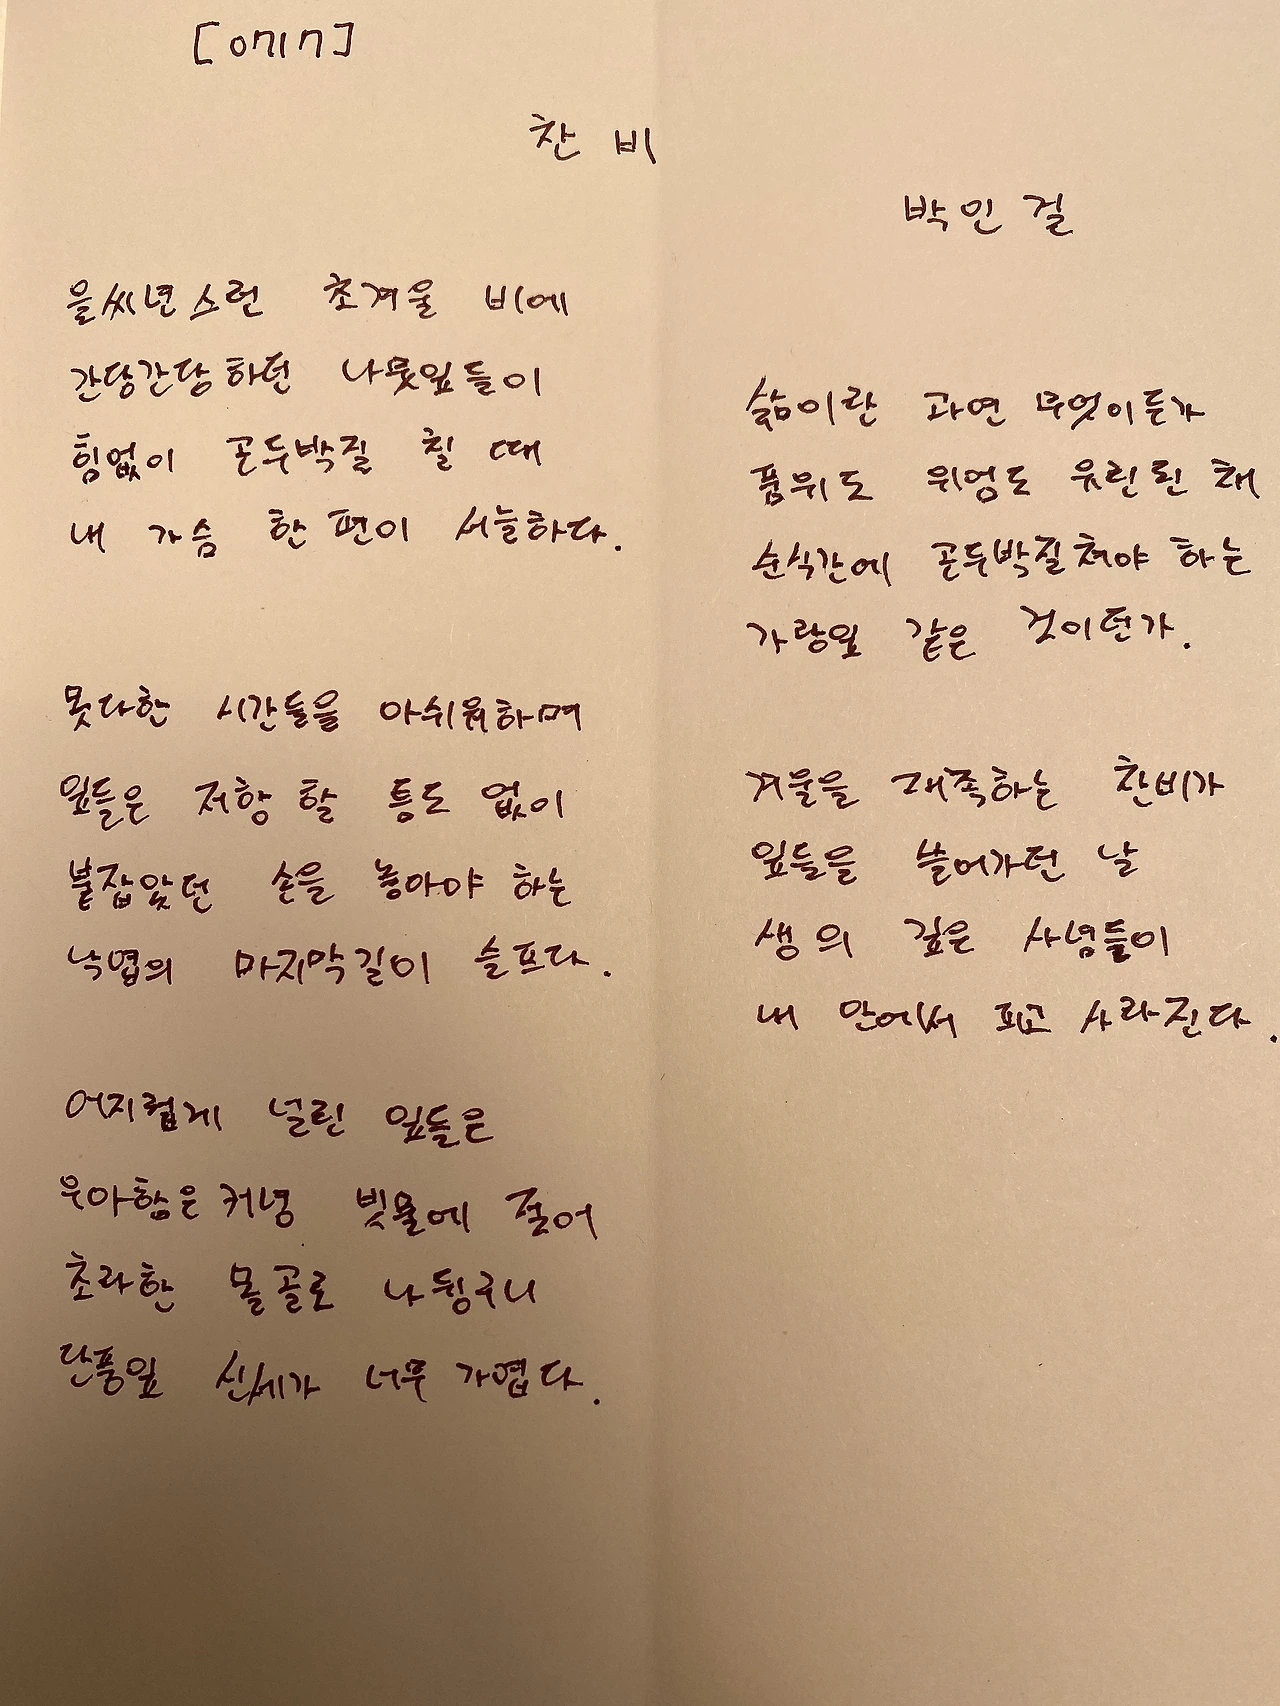 [0717]
찬 비
박인걸
을씨년스런 초겨울 비에
간당간당하던 나뭇잎들이
힘없이 곤두박질 칠 때
내 가슴 한 편이 서늘하다.
못다한 시간들을 아쉬워하며
잎들은 저항 할 틈도 없이
붙잡았던 손을 놓아야 하는
낙엽의 마지막길이 슬프다.
어지럽게 널린 잎들은
우아함은 커녕 빗물에 젖어
초라한 몰골로 나뒹구니
단풍잎 신세가 너무 가엽다.
삶이란 과연 무엇이든가
품위도 위엄도 유린된 채
순식간에 곤두박질쳐야 하는
가랑잎 같은 것이던가.
겨울을 재촉하는 찬비가
잎들을 쓸어가던 날
생의 깊은 사념들이
내 안에서 피고 사라진다.